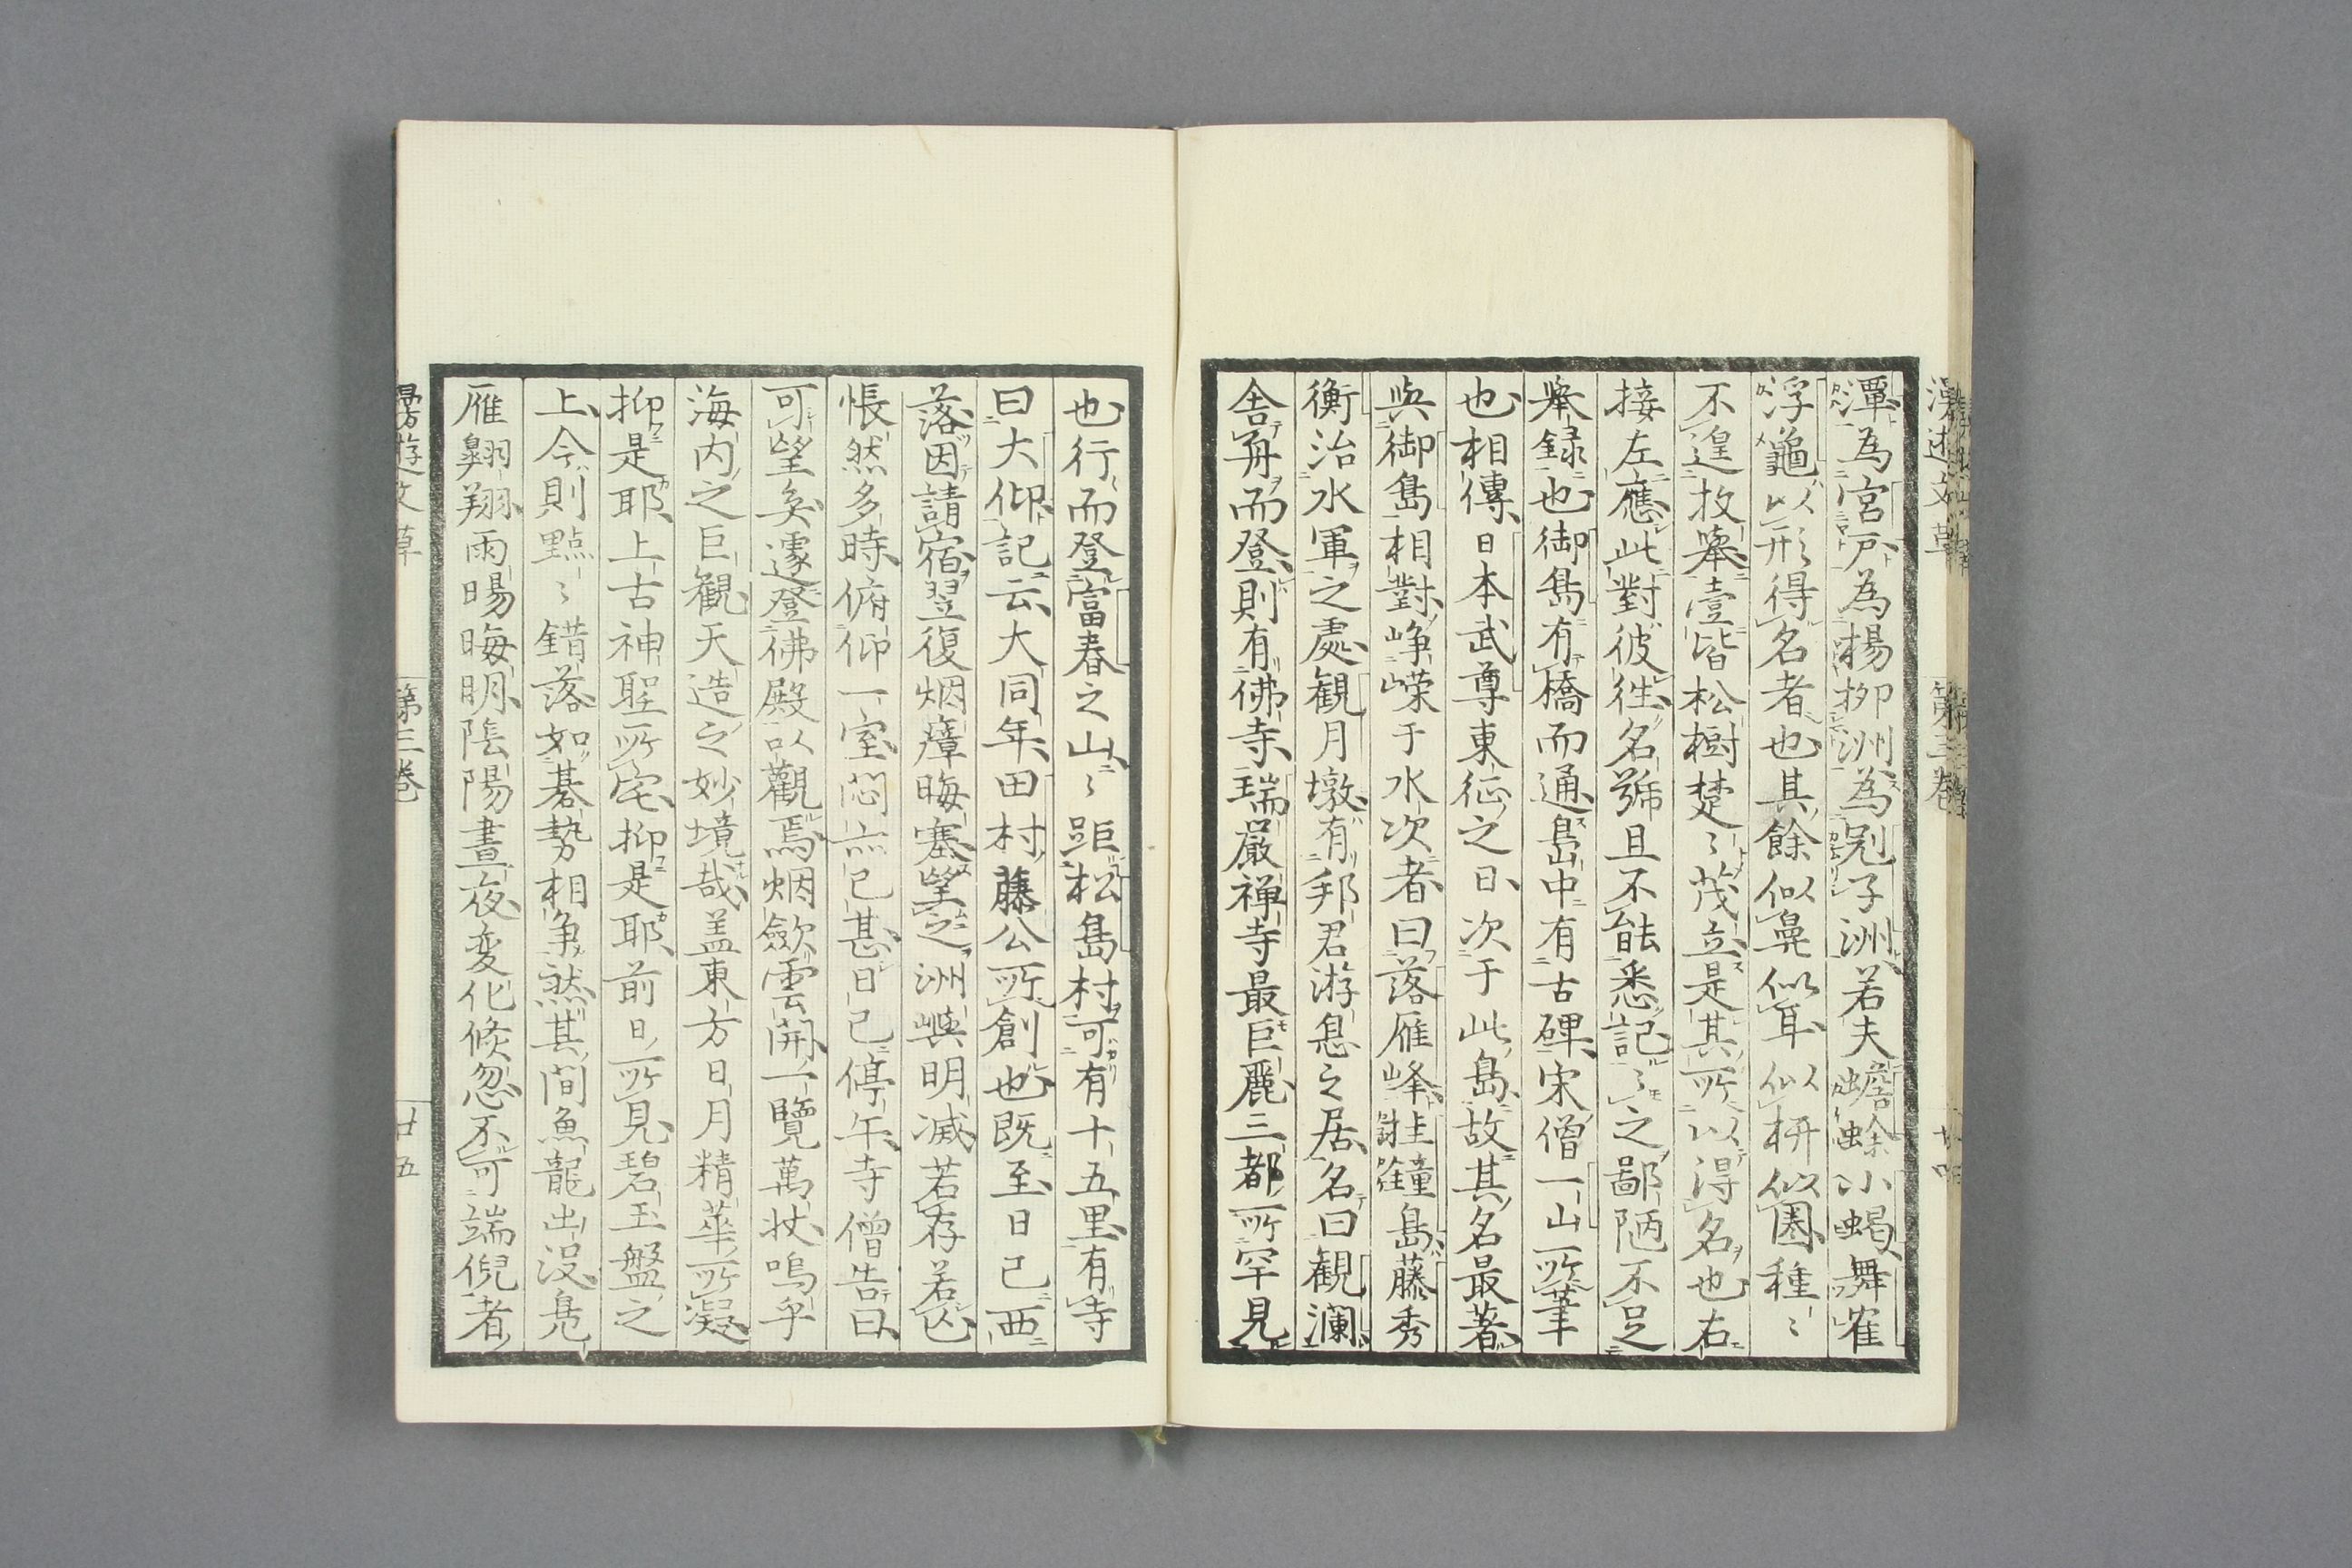 潭為宮戸為楊柳洲為剜子洲若夫蟾蜍小蝎舞寉
浮龜以形得名者也其餘似鼻似耳似枅似圏種〻
不遑枚擧壹皆松樹楚〻茂立是其所以得名也右
接左應此對彼徃名號且不能悉記〻之鄙陋不足
擧録也御島有橋而通島中有古碑宋僧一山所筆
也相傳日本武尊東征之日次于此島故其名最著
與御島相對崢嶸于水次者曰落雁峰鐘島藤秀
衡治水軍之處觀月墩有邦君游息之居名曰觀瀾
舎舟而登則有佛寺瑞巖禅寺最巨麗三都所罕見
也行而登富春之山〻距松島村可有十五里有寺
曰大仰記云大同年田村藤公所創也既至日已西
落因請宿翌復烟瘴晦塞望之洲嶼明滅若存若亾
悵然多時俯仰一室悶亦已甚日已停午寺僧告曰
可望矣遽登佛殿以觀焉烟歛雲開一覽萬状嗚乎
海内之巨觀天造之妙境哉盖東方日月精華所凝
抑是耶上古神聖所宅抑是耶前日所見碧玉盤之
上今則點〻錯落如碁勢相争然其間魚龍出没鳧
雁翺翔雨暘晦明陰陽晝夜変化倐忽不可端倪者
漫遊文草 第三巻 廿五